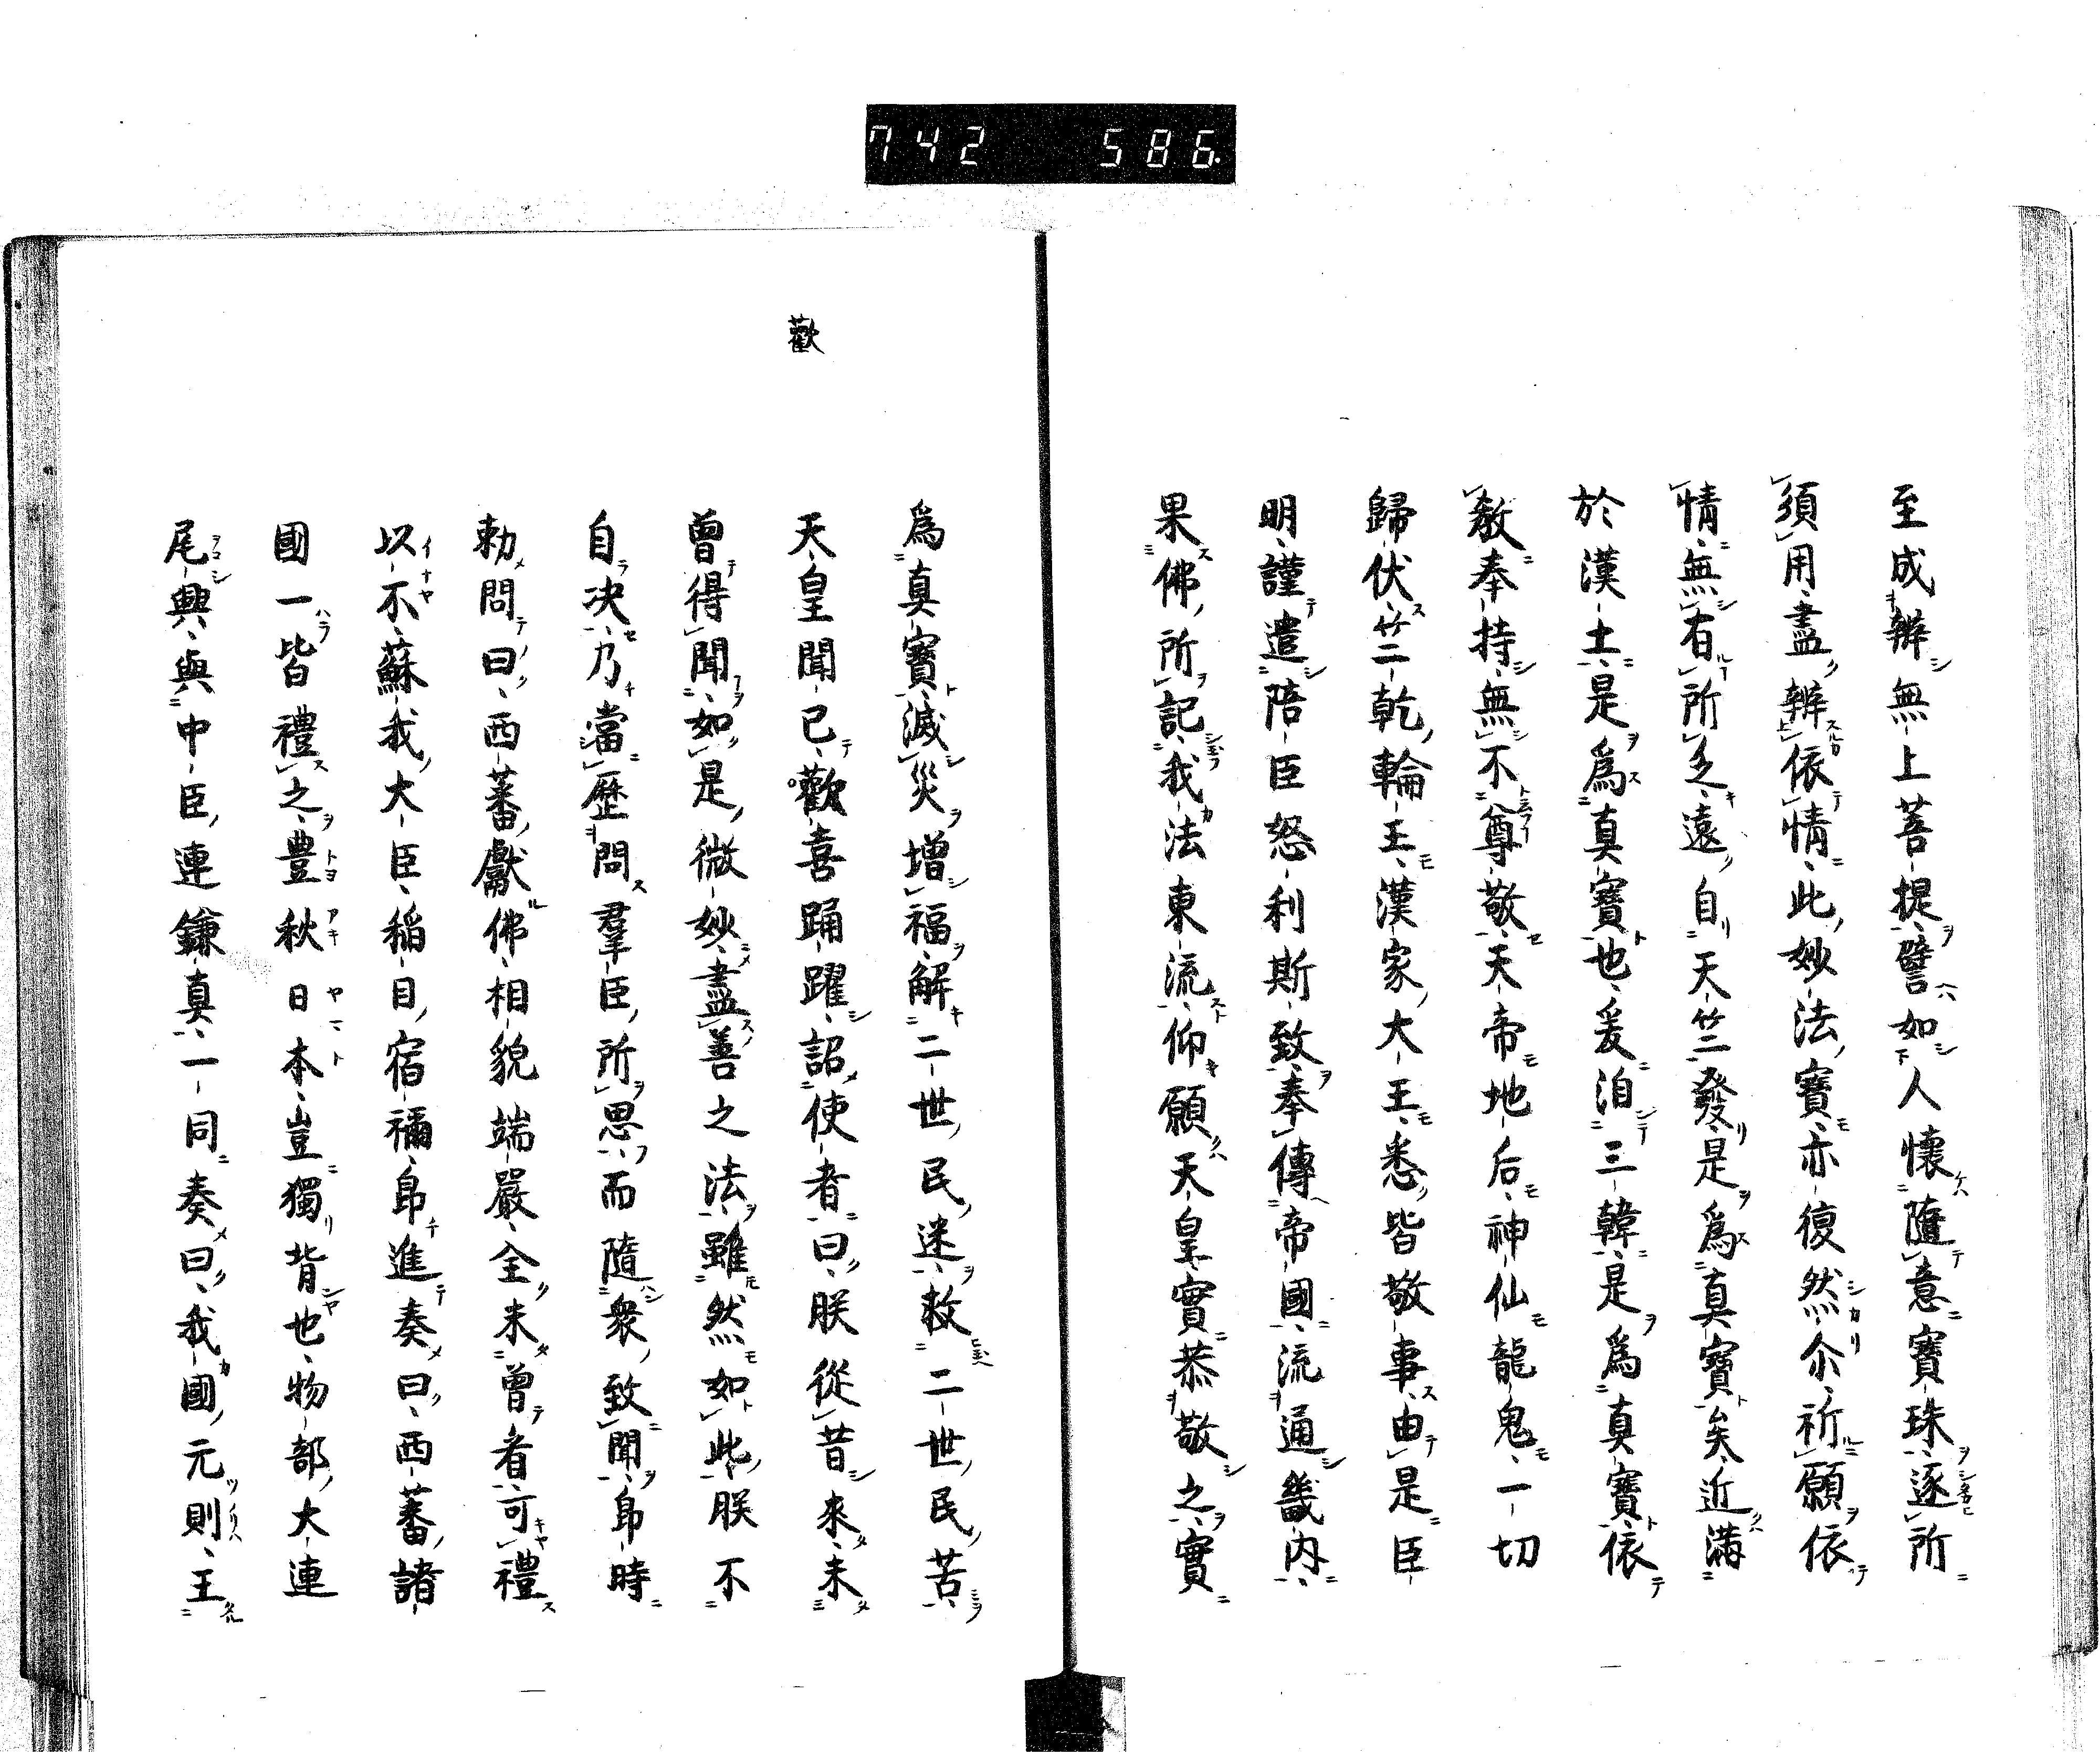 742 586
至成辦無上菩提譬如人懷隨意寶珠逐所
須用盡辦依情此妙法寶亦復然尒祈願依
情無有所乏遠自天竺發是爲真寶矣近滿
於漢土是爲真寶也爰洎三韓是爲真寶依
敎奉持無不尊敬天帝地后神仙龍鬼一切
歸伏竺乾輪王漢家大王悉皆敬事由是臣
明謹遣陪臣怒利斯致奉傳帝國流通畿内
果佛所記我法東流仰願天皇實恭敬之實
爲真寶滅災增福解二世民迷救二世民苦
天皇聞已歡喜踊躍詔使者曰朕從昔來未
曾得聞如是微妙盡善之法雖然如此朕不
自決乃當歷問羣臣所思而隨衆致聞帛時
勅問曰西蕃獻佛相貌端嚴全未曾看可禮
以不蘇我大臣稲目宿禰帛進奏曰西蕃諸
國一皆禮之豊秋日本豈獨背也物部大連
尾興與中臣連鎌真一同奏曰我國元則王
歡